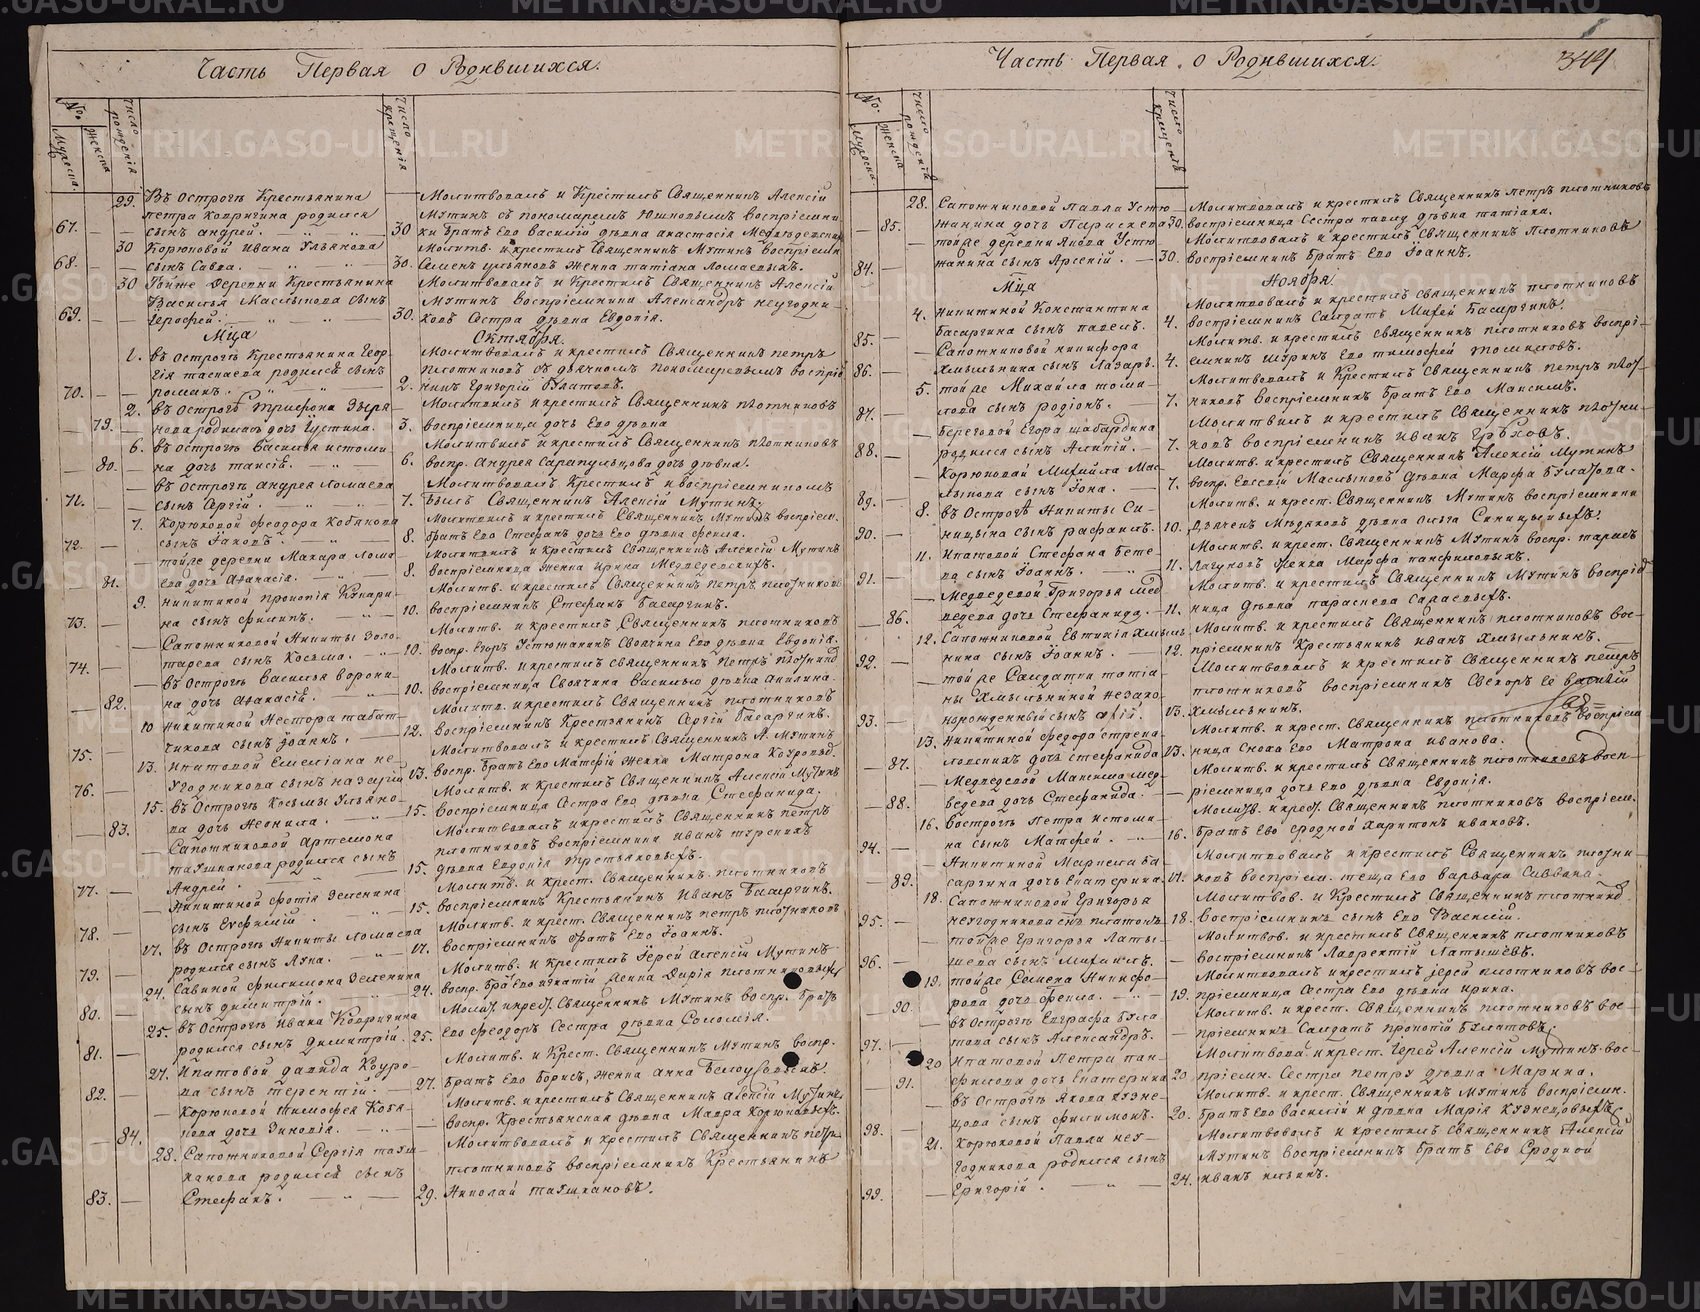 Часть Первая о Родившихся.
№.
Мужеска.
Женска
Число рожденія
Число крещенія
29. Въ Острогѣ Крестьянина
Петра Ковригина родился
67. — сынъ Андрей. 30
Молитвовалъ и Крестилъ Священникъ Алексій
Мутинъ съ пономаремъ
братъ Его Василій дѣвка Анастасія
30 Корюковой Ивана Ульянова
68. — сынъ Савва. 30.
Молитв. и крестилъ Священникъ Мутинъ
Семенъ Ульяновъ женка Татіана
30 Тойже Деревни Крестьянина
Василья Маслыкова сынъ
69. — Іерофей. 30.
Молитвовалъ и Крестилъ Священникъ Алексій
Мутинъ воспріемники Александръ Неугодни-
ковъ Сестра дѣвка Евдокія.
Мца Октября.
1. въ острогѣ Крестьянина Геор-
гія родился сынъ
70. — романъ. 2.
Молитвовалъ и крестилъ Священникъ петръ
плотниковъ съ дьячкомъ
Григорій Булатовъ.
2. въ Острогѣ Трифона
79. родилась дочь Іустина. 3.
Молитвилъ и крестилъ Священникъ плотниковъ
воспріемница дочь Его дѣвка
6. въ острогѣ Василья истоми-
80. — на дочь Таисія. 6.
Молитвилъ и крестилъ Священникъ плотниковъ
воспр. Андрея Сарапульцова дочь дѣвка.
въ острогѣ Андрея Ломаева
71. — сынъ Сергій. 7.
Молитвовалъ Крестилъ и воспріемникомъ
былъ Священникъ Алексій Мутинъ.
7. Корюковой Феодора Кобякова
72. — сынъ Іаковъ. 8.
Молитвилъ и крестилъ Священникъ Мутинъ воспріем.
братъ Его Стефанъ дочь Его дѣвка Фекла.
тойже деревни Макара Лома-
81. ева дочь Афанасія. 8.
Молитвилъ и крестилъ Священникъ Алексій Мутинъ
воспріемница женка Ирина Медведевскихъ.
9. Никитиной Прокопія
73. — на сынъ Филипъ. 10.
Молитв. и крестилъ Священникъ Петръ плотниковъ
воспріемникъ Стефанъ Басаргинъ.
Сапожниковой Никиты Золо-
74. — тарева сынъ Косьма. 10.
Молитв. и крестилъ Священникъ плотниковъ
воспр. Егоръ Устюжанинъ Своячина Его дѣвка Евдокія.
въ Острогѣ Василья ворони-
82. на дочь Афанасія. 10.
Молитв. и крестилъ священникъ Петръ
воспріемница Своячина Василью дѣвка Акилина.
10 Никитиной Нестора табат-
75. — чикова сынъ Іоаннъ. 12.
Молитв. и крестилъ Священникъ плотниковъ
воспріемникъ Крестьянинъ Сергій Басаргинъ.
13. Ипатовой Емеліана не-
76. — угодникова сынъ Назарій 13.
Молитвовалъ и крестилъ Священникъ А. Мутинъ
воспр. братъ Его Матфій женка Матрона
15. въ Острогѣ Козьмы Ульяно-
83. ва дочь Неонила. 15.
Молитв. и Крестилъ Священникъ Алексій Мутинъ
воспріемница Сестра Его дѣвка Стефанида.
Сапожниковой Артемона
родился сынъ
77. — Андрей. 15.
Молитвовалъ и крестилъ Священникъ петръ
плотниковъ воспріемники иванъ
дѣвка Евдокія Третьяковыхъ.
Никитиной Фотія Зеленина
78. — сынъ Евфимій. 15.
Молитв. и крест. Священникъ плотниковъ
воспріемникъ Крестьянинъ Иванъ Басаргинъ.
17. въ Острогѣ Никиты Ломаева
79. — родился сынъ Лука. 17.
Молитв. и крест. Священникъ петръ плотниковъ
воспріемникъ братъ Его Іоаннъ.
24. Савиной Филимона Зеленина
80. — сынъ Димитрій. 24.
Молитв. и Крестилъ Іерей Алексій Мутинъ
воспр. братъ Его Игнатій женка Дарія плотниковыхъ
25. въ Острогѣ Ивана Ковригина
81. — родился сынъ Димитрій. 25.
Молит. и крест. Священникъ Мутинъ воспр. братъ
Его Феодоръ Сестра дѣвка Соломія.
27. Ипатовой Давида Коуро-
82. — ва сынъ Терентій. 27.
Молитв. и Крест. Священникъ Мутинъ воспр.
братъ Его Борисъ, женка Анна
Корюковой Тимофея Кобя-
84. кова дочь Зиновія.
Молитв. и крестилъ Священникъ Алексій Мутинъ
воспр. Крестьянская дѣвка Мавра Корюковыхъ.
28. Сапожниковой Сергія таушканова
родился сынъ
83. — Стефанъ. 29.
Молитвовалъ и крестилъ Священникъ петръ
плотниковъ воспріемникъ Крестьянинъ
Николай таушкановъ.
Часть Первая о Родившихся.
344
№.
Мужеска
Женска
Число рожденія
Число крещенія
28. Сапожниковой Павла Устю-
85. жанина дочь Парискева 30.
Молитвовалъ и крестилъ Священникъ петръ плотниковъ
воспріемница Сестра павлу дѣвка татіана.
тойже деревни Якова Устю-
84. — жанина сынъ Арсеній. 30.
Молитвовалъ и крестилъ Священникъ Плотниковъ
воспріемникъ Братъ Его Іоаннъ.
Мца Ноября.
4. Никитиной Константина
85. — Басаргина сынъ павелъ. 4.
Молитвовалъ и крестилъ священникъ плотниковъ
воспріемникъ Салдатъ Михей Басаргинъ.
Сапожниковой никифора
86. — Хмыльнина сынъ Лазарь. 4.
Молитв. и крестилъ священникъ плотниковъ воспрі-
емникъ Шуринъ Его тимофей томиловъ.
5. тойже Михайла томи-
87. — лова сынъ родіонъ. 7.
Молитвовалъ и Крестилъ Священникъ петръ плот-
никовъ воспріемникъ братъ Его Максимъ.
Береговой Егора шабардина
88. — родился сынъ Алипій. 7.
Молитвилъ и крестилъ Священникъ плотни-
ковъ воспріемникъ иванъ Грѣховъ.
Корюковой Михайла Мас-
89. — лыкова сынъ Іона. 7.
Молитв. и крестилъ Священникъ Алексій Мутинъ
воспр. Евсевій Маслыковъ дѣвка Марфа Булатова.
8. въ Острогѣ Никиты Си-
90. — ницына сынъ рафаилъ. 10.
Молитв. и крест. Священникъ Мутинъ воспріемники
дьячекъ Мѣдяковъ дѣвка Ольга Синицыныхъ.
11. Ипатовой Стефана Бете-
91. — ва сынъ Іоаннъ. 11.
Молитв. и крест. Священникъ Мутинъ воспр. тарасъ
Лагуновъ женка Марфа панфиловыхъ.
Медведевой Григорья Мед-
86. ведева дочь Стефанида. 11.
Молитв. и крестилъ Священникъ Мутинъ воспріем-
ница дѣвка параскева Сараевыхъ.
12. Сапожниковой Евтихія Хмыль-
92. — нина сынъ Іоаннъ. 12.
Молитв. и крестилъ Священникъ плотниковъ вос-
пріемникъ Крестьянинъ иванъ Хмыльнинъ.
тойже Салдатки татіа-
ны Хмыльниной незако-
93. — норожденный сынъ 13.
Молитвовалъ и крестилъ Священникъ петръ
плотниковъ воспріемникъ Свекоръ Ее василій
Хмыльнинъ.
13. Никитиной федора стрека-
87. ловскихъ дочь Стефанида 13.
Молитв. и крест. Священникъ плотниковъ воспріем-
ница Сноха Его Матрона иванова.
Медведевой Максима мед-
88. ведева дочь Стефанида.
Молитв. и крестилъ Священникъ плотниковъ восп-
ріемница дочь Его дѣвка Евдокія.
16. Вострогѣ Петра истоми-
94. — на сынъ Матфей. 16.
Молитв. и крест. Священникъ плотниковъ воспріем.
братъ Его Сродной Харитонъ ивановъ.
Никитиной Маркела Ба-
89. саргина дочь Екатерина. 17.
Молитвовалъ и крестилъ Священникъ плотни-
ковъ воспріем. теща Его варвара Саввана.
18. Сапожниковой Григорья
95. — неугодникова сынъ платонъ 18.
Молитвов. и Крестилъ Священникъ плотников.
воспріемникъ сынъ Его Василій.
тойже Григорья Латы-
96. — шева сынъ Михаилъ.
Молитвов. и крестилъ Священникъ плотниковъ
воспріемникъ Лаврентій Латышевъ.
19. тойже Семена Никифо-
90. рова дочь Фекла. 19.
Молитвовалъ и крестилъ іерей плотниковъ вос-
пріемница Сестра Его дѣвка ирина.
въ Острогѣ Евграфа Була-
97. — това сынъ Александръ.
Молитв. и крест. Священникъ плотниковъ вос-
пріемникъ Салдатъ прокопій Булатовъ.
20 Ипатовой Петра пан-
91. филова дочь Екатерина 20
Молитвова. и крест. Іерей Алексій Мутинъ вос-
пріемн. Сестра петру дѣвка Марина.
въ Острогѣ Якова кузне-
98. — цова сынъ филимонъ. 20.
Молитв. и крест. Священникъ Мутинъ воспріемн.
братъ Его Василій и дѣвка Марія Кузнецовыхъ.
21. Корюковой Павла неу-
годникова родился сынъ
99. — Григорій. 24.
Молитвовалъ и крестилъ Священникъ Алексій
Мутинъ воспріемникъ братъ Его Сродной
иванъ ильинъ.
METRIKI.GASO-URAL.RU